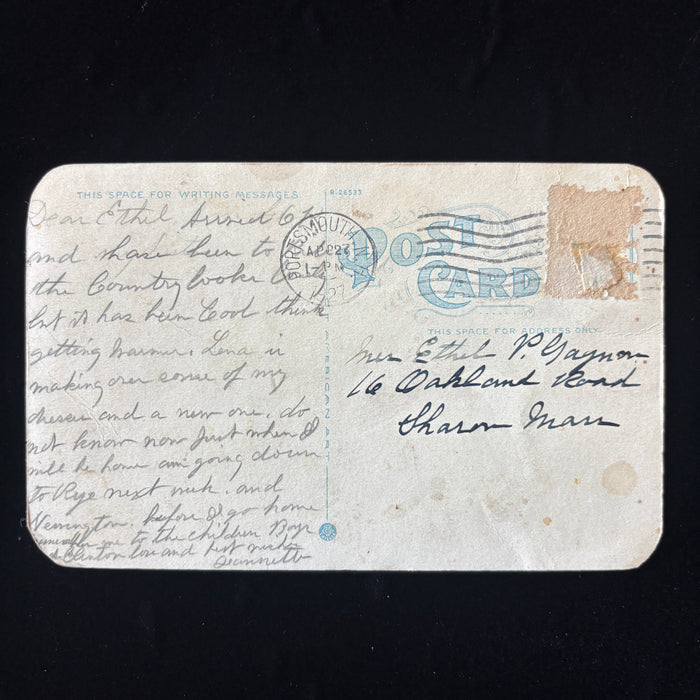 THIS SPACE FOR WRITING MESSAGES
R-26533
Dear Ethel Arrived
and have been to
the Country looks
but it has been Cool think
getting warmer. Lena is
making over some of my
dresses and a new one. do
not know now just when I
will be home am going down
to Rye next week. and
before I go home
remember me to the children Boys
& Clinton love and best wishes
Jeannette
PORTSMOUTH
PM
POST
CARD
THIS SPACE FOR ADDRESS ONLY
Mrs Ethel P. Gaynor
16 Oakland Road
Sharon Mass